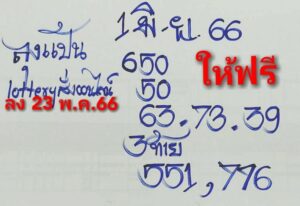 1 มิ.ย. 66
ลุงแป๊น
lotteryสั่งออนไลน์
ลง 23 พ.ค.66
ให้ฟรี
650
50
63.73.39
3ท้าย
551,776